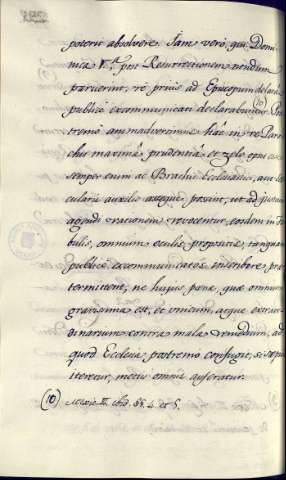 poterit absolvere. Iam vero, qui Domi-
nica V.ta post Resurrectionem nondum
paruerint, re prius ad Episcopum delata
publicè excommunicati declarabuntur (10). Po-
stremò animadvertimus hac in re Paro-
chis maximâ prudentiâ et zelo opus esse
semper enim ac Brachii Ecclesiastici, aut Se-
cularis auxilio atque
agendi rationem revocentur, eosdem in Ta-
bulis, omnium oculis propositis, tanquam
publicè excommunicatos inscribere, præ-
termittent, ne hujus pœnæ, quæ omnium
gravissima est, et unicum, æque extraor-
dinarium contra mala remedium, ad
quod Ecclesia postremo confugit, si sæpius
iteretur, metus omnis auferatur.
(10) 4. et 5.